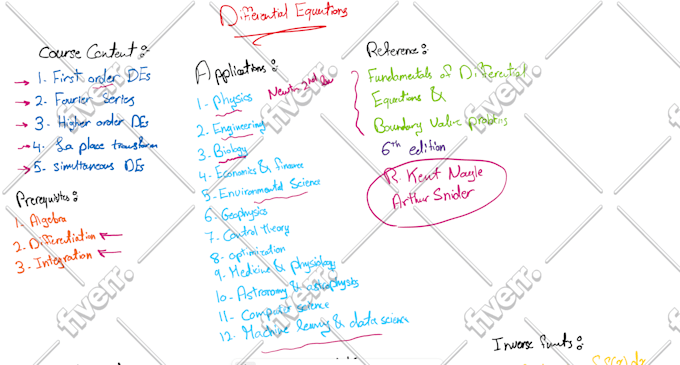 Differential Equations
Course Content:
1. First order DEs
2. Fourier Series
3. Higher order DEs
4. La place transform
5. Simultaneous DEs
Prerequisites:
1. Algebra
2. Differentiation
3. Integration
Applications:
1. Physics
Newton 2nd law
2. Engineering
3. Biology
4. Economics & finance
5. Environmental Science
6. Geophysics
7. Control theory
8. optimization
9. Medicine & physiology
10. Astronomy & astrophysics
11. Computer science
12. Machine learning & data science
Reference:
Fundamentals of Differential
Equations &
Boundary Value problems
6th edition
R. Kent Nagle
Arthur Snider
Inverse functs:
fiverr.